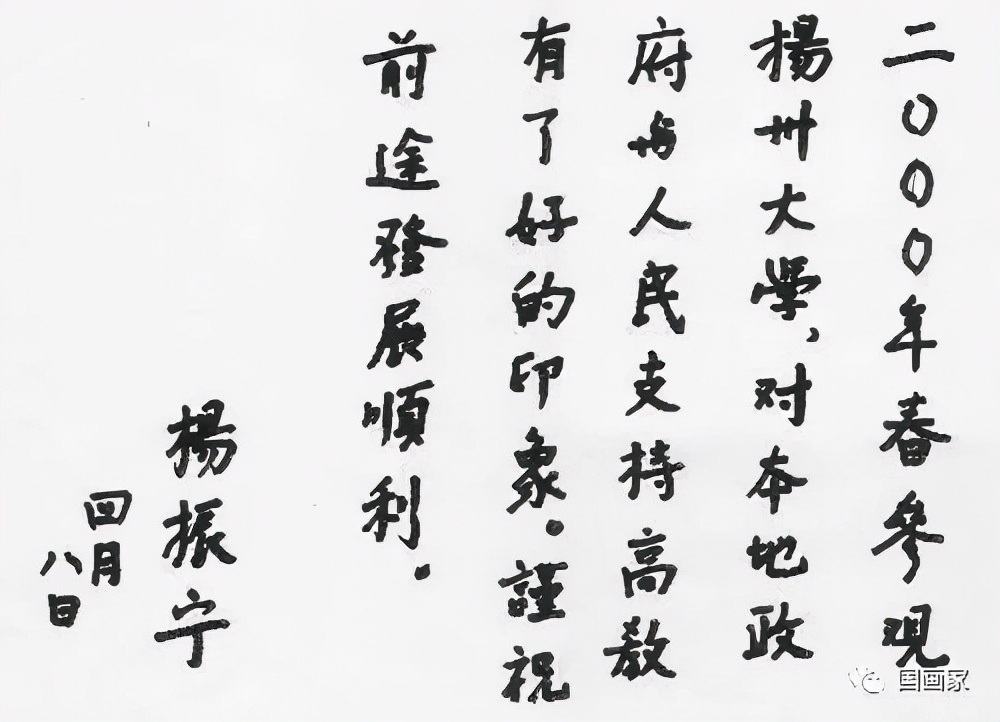 二〇〇〇年春參观
楊州大學,对本地政
府与人民支持高教
有了好的印象。謹祝
前途發展順利.
楊振宁
四月
八日
国画家